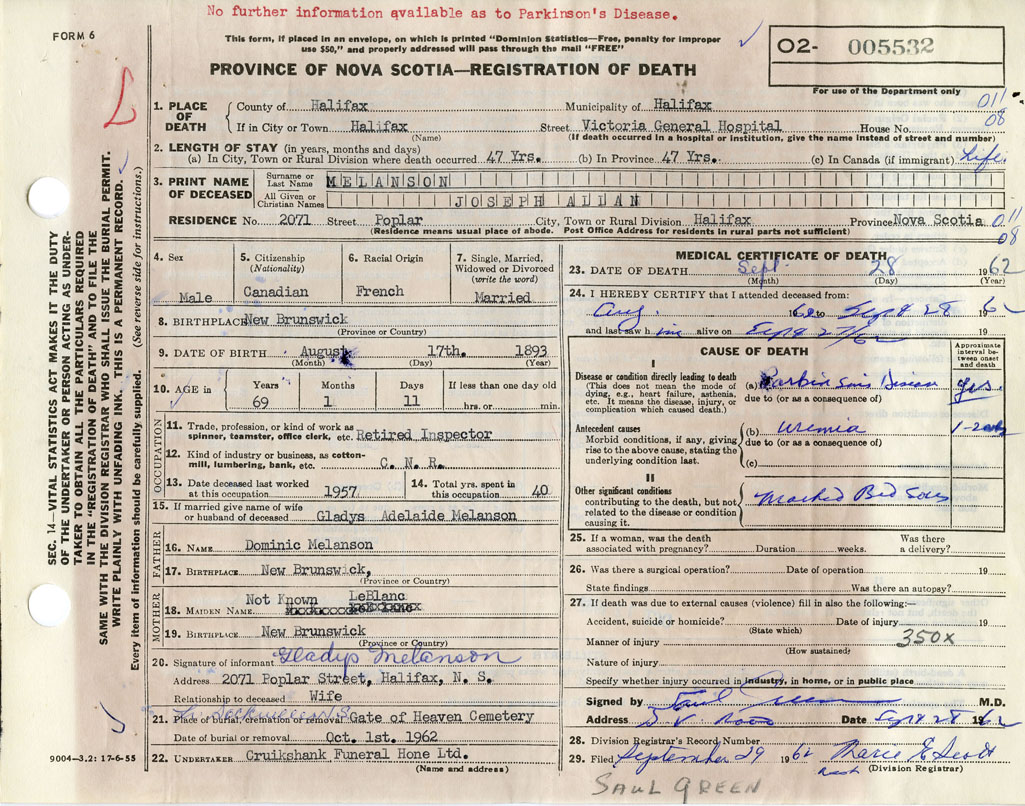 No further information available as to Parkinson's Disease.
FORM 6
This form, if placed in an envelope, on which is printed "Dominion Statistics—Free, penalty for improper
use $50," and properly addressed will pass through the mail "FREE"
O2- 005532
For use of the Department only
PROVINCE OF NOVA SCOTIA—REGISTRATION OF DEATH
L
011
08
1. PLACE OF DEATH
County of Halifax Municipality of Halifax
If in City or Town Halifax Street Victoria General Hospital House No.
(Name) (If death occurred in a hospital or institution, give the name instead of street and number)
2. LENGTH OF STAY (in years, months and days)
(a) In City, Town or Rural Division where death occurred 47 Yrs. (b) In Province 47 Yrs. (c) In Canada (if immigrant) Life.
3. PRINT NAME OF DECEASED
Surname or Last Name MELANSON
All Given or Christian Names JOSEPH ALLAN
RESIDENCE No. 2071 Street Poplar City, Town or Rural Division Halifax Province Nova Scotia 011
08
(Residence means usual place of abode. Post Office Address for residents in rural parts not sufficient)
4. Sex
Male
5. Citizenship
(Nationality)
Canadian
6. Racial Origin
French
7. Single, Married,
Widowed or Divorced
(write the word)
Married
8. BIRTHPLACE New Brunswick
(Province or Country)
9. DATE OF BIRTH August 17th. 1893
(Month) (Day) (Year)
10. AGE in
Years Months Days If less than one day old
69 1 11 hrs. or min.
OCCUPATION
11. Trade, profession, or kind of work as
spinner, teamster, office clerk, etc. Retired Inspector
12. Kind of industry or business, as cotton-
mill, lumbering, bank, etc. C. N. R.
13. Date deceased last worked
at this occupation 1957
14. Total yrs. spent in
this occupation 40
15. If married give name of wife
or husband of deceased Gladys Adelaide Melanson
FATHER
16. NAME Dominic Melanson
17. BIRTHPLACE New Brunswick,
(Province or Country)
MOTHER
18. MAIDEN NAME Not Known LeBlanc
19. BIRTHPLACE New Brunswick
(Province or Country)
20. Signature of informant Gladys Melanson
Address 2071 Poplar Street, Halifax, N. S.
Relationship to deceased Wife
21. Place of burial, cremation or removal Gate of Heaven Cemetery
Date of burial or removal Oct. 1st. 1962
22. UNDERTAKER Cruikshank Funeral Hone Ltd.
(Name and address)
MEDICAL CERTIFICATE OF DEATH
23. DATE OF DEATH Sept. 28 1962
(Month) (Day) (Year)
24. I HEREBY CERTIFY that I attended deceased from:
Aug. 1962 to Sept 28 1962
and last saw him alive on Sept 27/62 19
CAUSE OF DEATH
Approximate
interval be-
tween onset
and death
I
Disease or condition directly leading to death
(This does not mean the mode of
dying, e.g., heart failure, asthenia,
etc. It means the disease, injury, or
complication which caused death.)
(a) Parkinsons Disease yrs.
due to (or as a consequence of)
Antecedent causes
Morbid conditions, if any, giving
rise to the above cause, stating the
underlying condition last.
(b) uremia
due to (or as a consequence of)
(c)
II
Other significant conditions
contributing to the death, but not
related to the disease or condition
causing it.
Marked Bed Sores
25. If a woman, was the death
associated with pregnancy? Duration weeks. Was there
a delivery?
26. Was there a surgical operation? Date of operation 19
State findings Was there an autopsy?
27. If death was due to external causes (violence) fill in also the following:—
Accident, suicide or homicide? Date of injury 19
(State which)
Manner of injury 350x
(How sustained)
Nature of injury
Specify whether injury occurred in industry, in home, or in public place
Signed by Saul Green M.D.
Address Date Sept 28 1962
28. Division Registrar's Record Number
29. Filed September 29 1962
(Division Registrar)
SAUL GREEN
SEC. 14—VITAL STATISTICS ACT MAKES IT THE DUTY
OF THE UNDERTAKER OR PERSON ACTING AS UNDER-
TAKER TO OBTAIN ALL THE PARTICULARS REQUIRED
IN THE "REGISTRATION OF DEATH" AND TO FILE THE
SAME WITH THE DIVISION REGISTRAR WHO SHALL ISSUE THE BURIAL PERMIT.
WRITE PLAINLY WITH UNFADING INK. THIS IS A PERMANENT RECORD.
Every item of information should be carefully supplied. (See reverse side for instructions.)
9004—3.2: 17-6-55